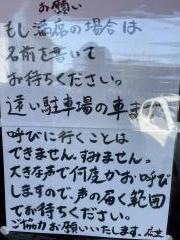 お願い
もし満席の場合は
名前を書いて
お待ちください。
遠い駐車場の車まで
呼びに行くことは
できません。すみません。
大きな声で何度かお呼び
しますので、声の届く範囲
でお待ちください。
ご協力お願いいたします。店主